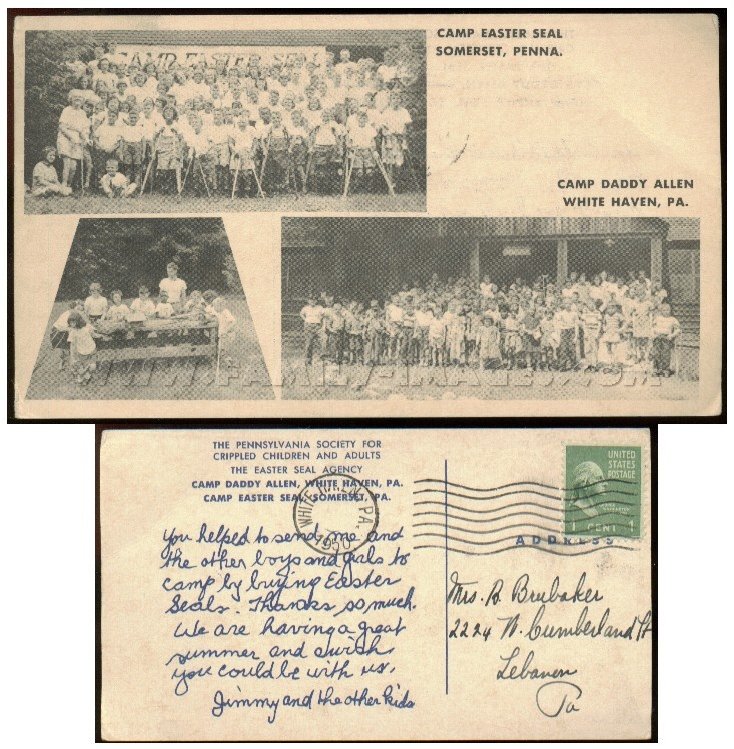 CAMP EASTER SEAL
CAMP EASTER SEAL
SOMERSET, PENNA.
CAMP DADDY ALLEN
WHITE HAVEN, PA.
WWW.FAMILY-IMAGES.COM
THE PENNSYLVANIA SOCIETY FOR
CRIPPLED CHILDREN AND ADULTS
THE EASTER SEAL AGENCY
CAMP DADDY ALLEN, WHITE HAVEN, PA.
CAMP EASTER SEAL, SOMERSET, PA.
WHITE HAVEN, PA.
1950
UNITED
STATES
POSTAGE
1 CENT 1
ADDRESS
You helped to send me and
the other boys and girls to
camp by buying Easter
Seals. Thanks so much.
We are having a great
summer and wish
you could be with us.
Jimmy and the other kids
Mrs. B. Brubaker
2224 W. Cumberland St
Lebanon
Pa